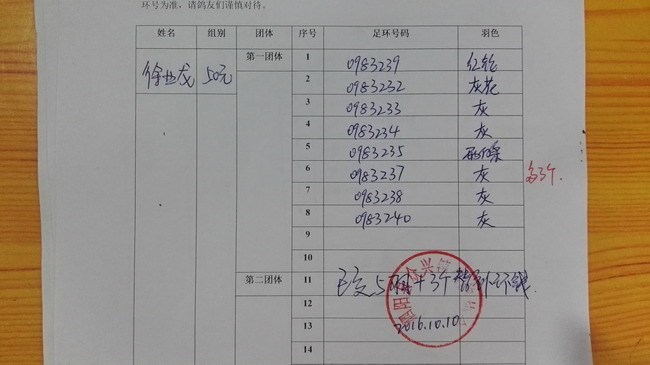 环号为准，请鸽友们谨慎对待。
姓名 组别 团体 序号 足环号码 羽色
徐 50元 第一团体 1 0983239 红轮
2 0983232 灰花
3 0983233 灰
4 0983234 灰
5 0983235
6 0983237 灰 多3个
7 0983238 灰
8 0983240 灰
9
10
第二团体 11 已交5 +3个 环钱
12
13 2016.10.10
14